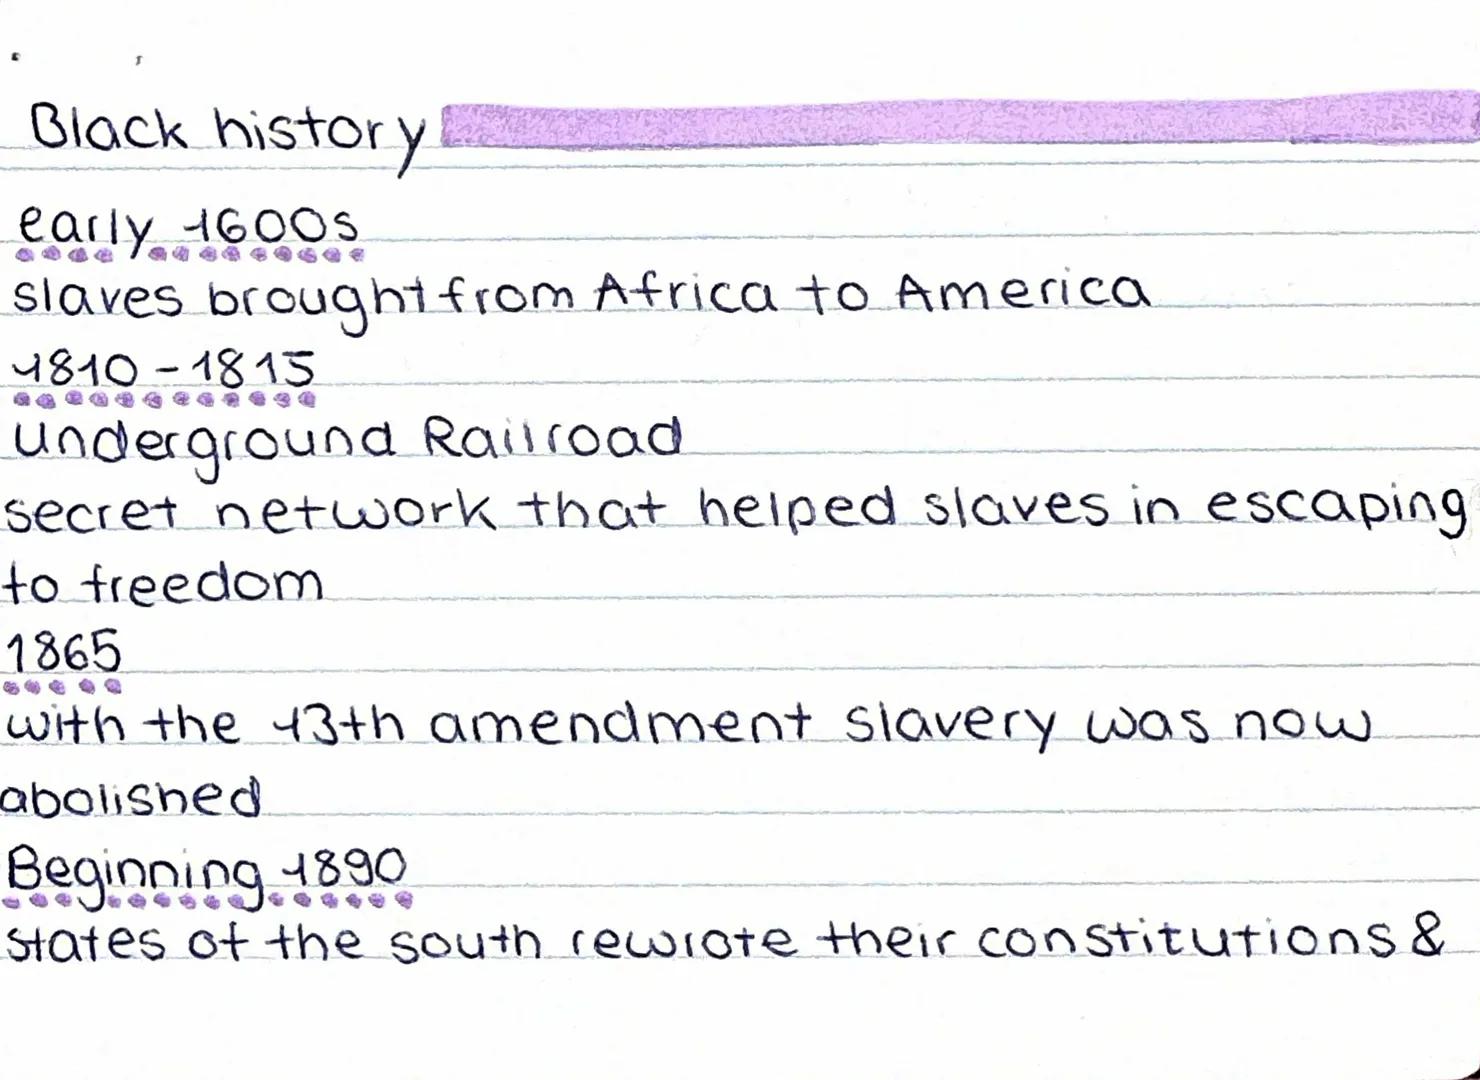 Black history
early 1600s
slaves brought from Africa to America
1810 - 1815
underground Railroad
secret network that helped slaves in escaping
to freedom
1865
with the 13th amendment slavery was now
abolished
Beginning 1890
states of the south rewrote their constitutions &